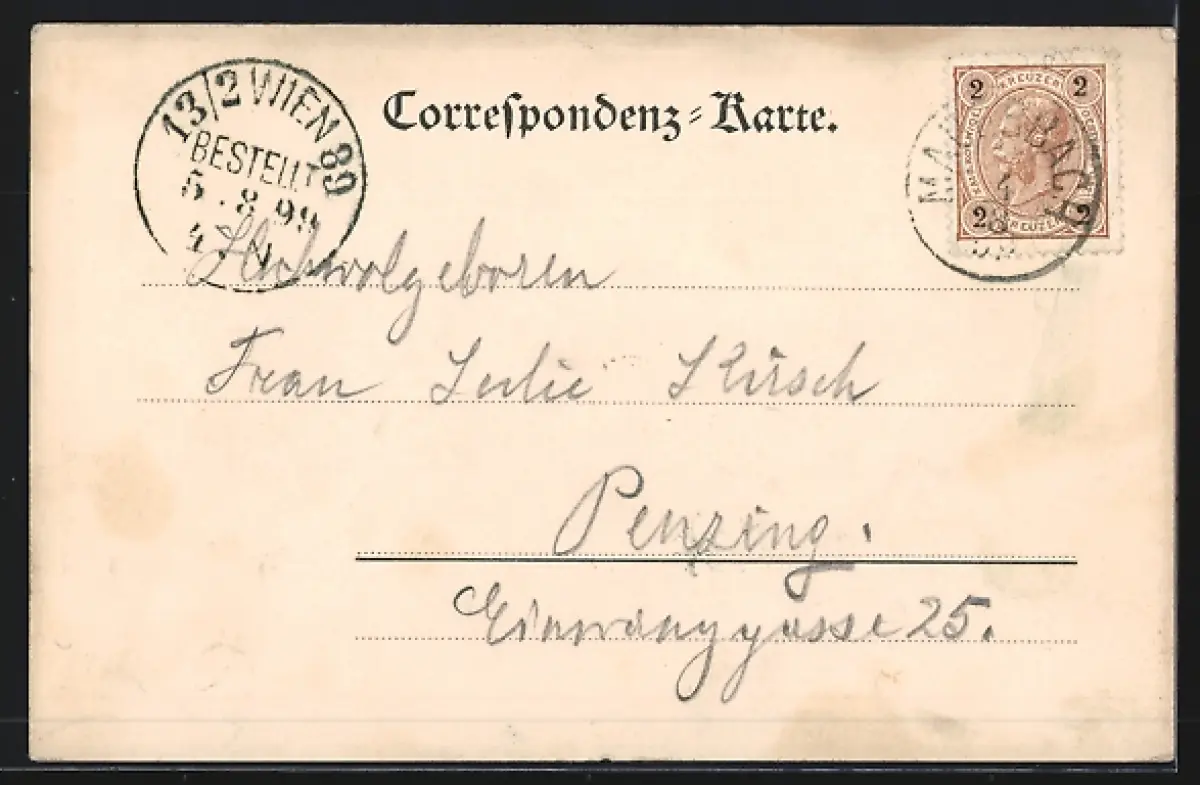 13/2 WIEN 89
BESTELLT
5.8.99
4.N
Correspondenz-Karte.
2 KREUZER 2
2 KREUZER 2
Hochwolgeboren
Frau Julie Kirsch
Penzing.
Einwanggasse 25.